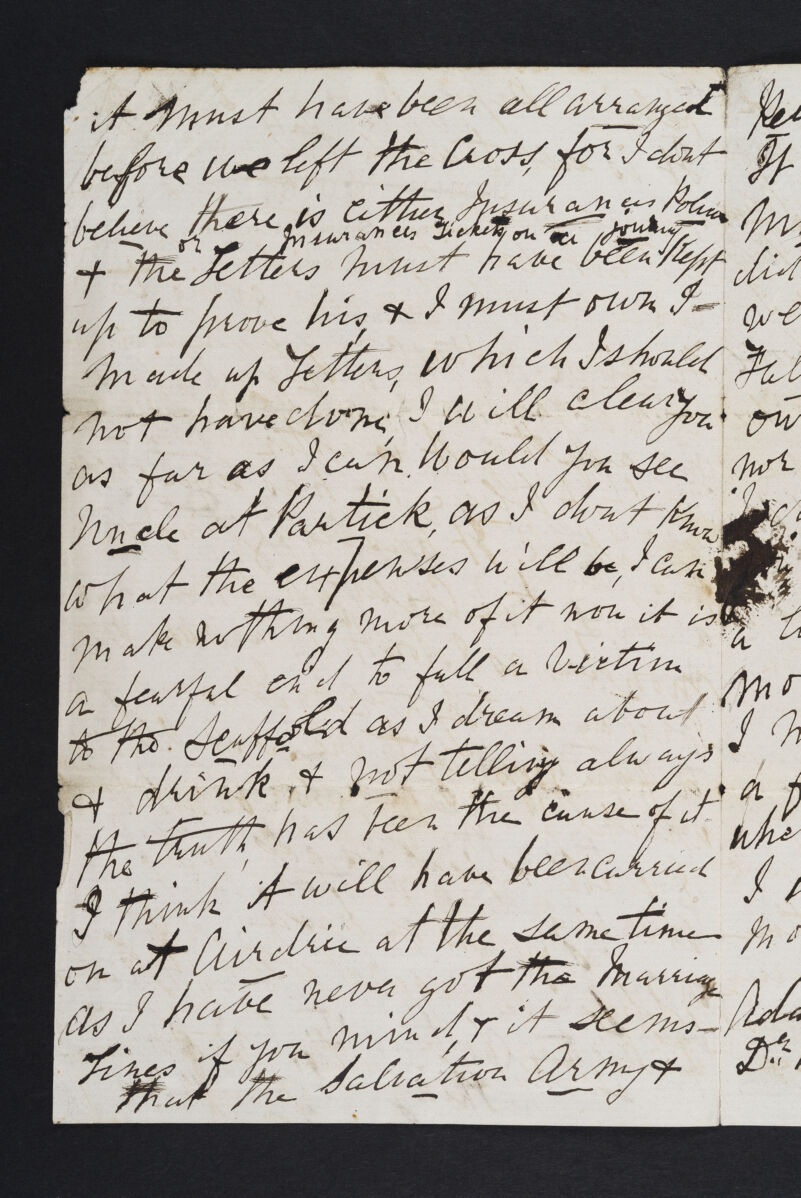 it must have been all arranged
before we left the Cross, for I dont
believe there is either Insurances Polices
or Insurances Tickets on our journey
& the Letters must have been kept
up to prove his, & I must own I
made up Letters, which I should
not have done, I will clear you
as far as I can. Would you see
Uncle at Partick, as I dont know
what the expenses will be, I can
make nothing more of it now it is
a fearful end to fall a victim
to the Scaffold as I dream about
& drink, & not telling always
the truth, has been the cause of it.
I think it will have been carried
on at Airdrie at the same time
as I have never got the Marriage
Lines if you mind, & it seems
that the Salvation Army &
It
did
we
nor
a
I
a
I